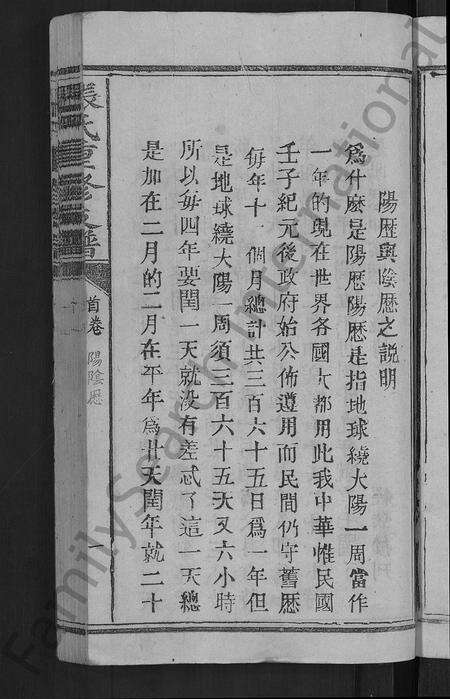 陽歴與陰歴之説明
爲什麼是陽歴陽歴是指地球繞大陽一周當作
一年的現在世界各國大都用此我中華惟民國
壬子紀元後政府始公佈遵用而民間仍守舊歴
每年十 個月總計共三百六十五日爲一年但
是地球繞大陽一周須三百六十五天又六小時
所以每四年要閏一天就没有差忒了這一天總
是加在二月的二月在平年爲廿天閏年就二十
張氏重修支譜
首卷 陽陰歴
一
FamilySearch International